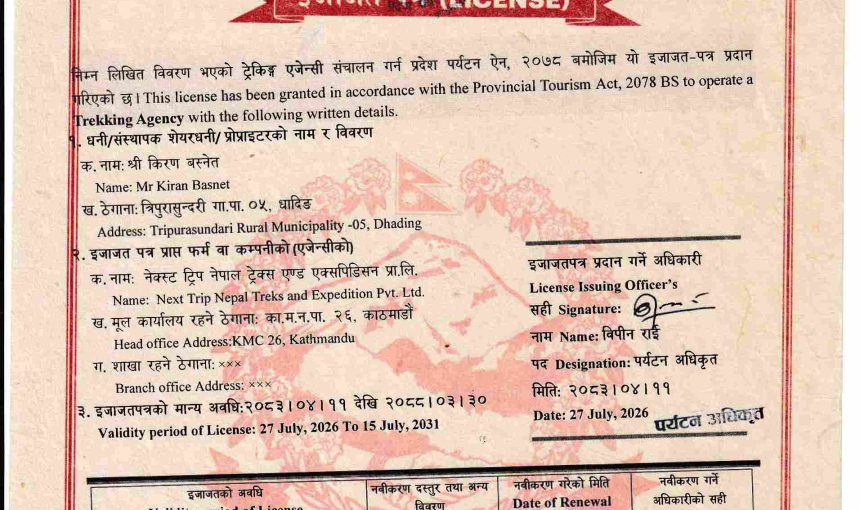 इजाजत पत्र (LICENSE)
निम्न लिखित विवरण भएको ट्रेकिङ्ग एजेन्सी संचालन गर्न प्रदेश पर्यटन ऐन, २०७८ बमोजिम यो इजाजत-पत्र प्रदान
गरिएको छ। This license has been granted in accordance with the Provincial Tourism Act, 2078 BS to operate a
Trekking Agency with the following written details.
१. धनी/संस्थापक शेयरधनी/ प्रोप्राइटरको नाम र विवरण
क. नाम: श्री किरण बस्नेत
Name: Mr Kiran Basnet
ख. ठेगाना: त्रिपुरासुन्दरी गा.पा. ०५, धादिङ
Address: Tripurasundari Rural Municipality -05, Dhading
२. इजाजत पत्र प्राप्त फर्म वा कम्पनीको (एजेन्सीको)
क. नाम: नेक्स्ट ट्रिप नेपाल ट्रेक्स एण्ड एक्सपिडिसन प्रा.लि.
Name: Next Trip Nepal Treks and Expedition Pvt. Ltd.
ख. मूल कार्यालय रहने ठेगाना: का.म.न.पा. २६, काठमाडौं
Head office Address:KMC 26, Kathmandu
ग. शाखा रहने ठेगाना: ×××
Branch office Address: ×××
३. इजाजतपत्रको मान्य अवधि:२०८३।०४।११ देखि २०८८।०३।३०
Validity period of License: 27 July, 2026 To 15 July, 2031
इजाजतपत्र प्रदान गर्ने अधिकारी
License Issuing Officer's
सही Signature:
नाम Name: विपीन राई
पद Designation: पर्यटन अधिकृत
मिति: २०८३।०४।११
Date: 27 July, 2026
पर्यटन अधिकृत
इजाजतको अवधि
Validity period of License
नवीकरण दस्तुर तथा अन्य
विवरण
नवीकरण गरेको मिति
Date of Renewal
नवीकरण गर्ने
अधिकारीको सही